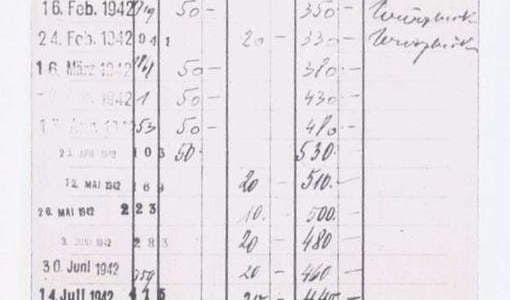 16. Feb. 1942 50 - 350 -
24. Feb. 1942 941 20 - 330 -
16. März 1942 50 - 380 -
1942 50 - 430 -
1942 53 50 - 480 -
1942 103 50 - 530 -
12. MAI 1942 169 20 - 510. -
26. MAI 1942 223 10. - 500. -
1942 283 20 - 480 -
30. Juni 1942 359 20 - 460 -
14. Juli 1942 415 20 - 440 -